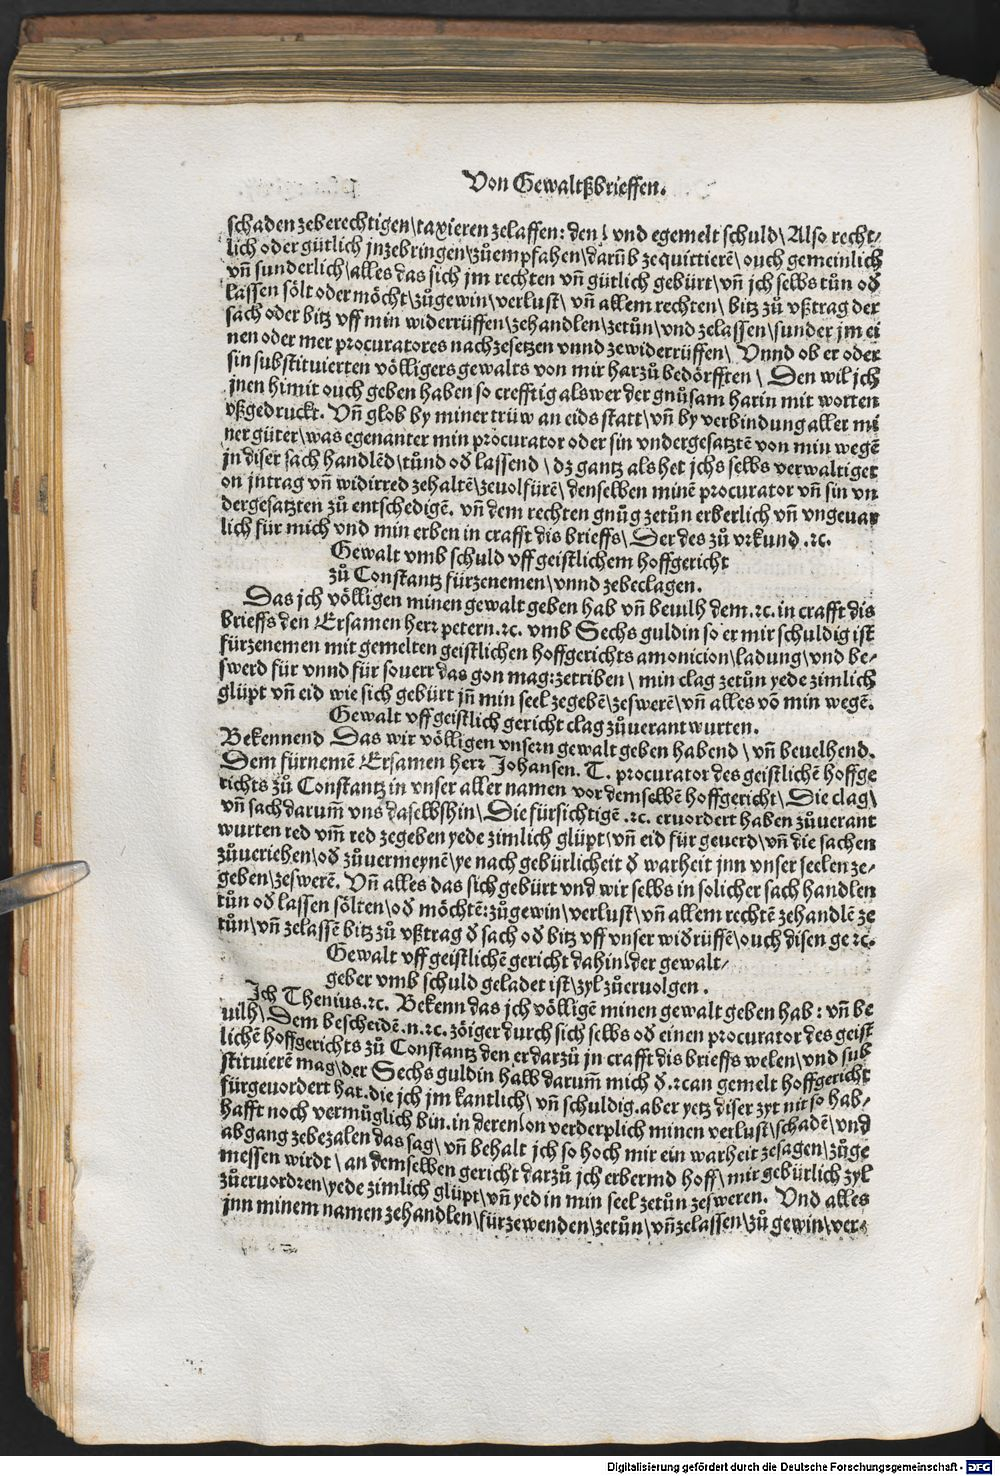 Von Gewaltßbrieffen.
schaden zeberechtigen\taxieren zelassen: den\ vnd egemelt schuld\ Also recht⸗
lich oder gütlich jnzebringen\zůempfahen\darum̄b zequittierē\ ouch gemeinlich
vn̄ sunderlich\alles das sich jm rechten vn̄ gütlich gebürt\vn̄ jch selbs tůn oď
lassen sölt oder möcht\zůgewin\verlust\ vn̄ allem rechten\ bitz zů vßtrag der
sach oder bitz vff min widerrüffen\zehandlen\zetůn\vnd zelassen\sunder jm ei
nen oder mer procuratores nachzesetzen vnnd zewiderrüffen\ Vnnd ob er oder
sin substituierten völligers gewalts von mir harzů bedörfften\ Den wil jch
jnen himit ouch geben haben so crefftig als wer der gnůsam harin mit worten
vßgedruckt. Vn̄ glob by miner trüw an eids statt\vn̄ by verbindung aller mi
ner güter\was egenanter min procurator oder sin vndergesatztē von min wegē
jn diser sach handlēd\tůnd oď lassend\ dz gantz als het jchs selbs verwaltiget
on jntrag vn̄ widirred zehaltē\zeuolfürē\ denselben minē procurator vn̄ sin vn
dergesatzten zů entschedigē. vn̄ dem rechten gnůg zetůn erberlich vn̄ vngeuar
lich für mich vnd min erben in crafft dis brieffs\ Der des zů vrkund .ꝛc.
Gewalt vmb schuld vff geistlichem hoffgericht
zů Constantz fürzenemen\vnnd zebeclagen.
Das jch völligen minen gewalt geben hab vn̄ beuilh dem.ꝛc. in crafft dis
brieffs den Ersamen herꝛ petern.ꝛc. vmb Sechs guldin so er mir schuldig ist
fürzenemen mit gemelten geistlichen hoffgerichts amonicion\ladung\vnd be⸗
swerd für vnnd für souerr das gon mag:zetriben\ min clag zetůn yede zimlich
glüpt vn̄ eid wie sich gebürt jn̄ min seel zegebē\zeswerē\vn̄ alles vō min wegē.
Gewalt vff geistlich gericht clag zůuerantwurten.
Bekennend Das wir völligen vnsern gewalt geben habend\ vn̄ beuelhend.
Dem fürnemē Ersamen herꝛ Johansen. T. procurator des geistlichē hoffge
richts zů Constantz in vnser aller namen vor demselbē hoffgericht\ Die clag\
vn̄ sach darum̄ vns daselbshin\ Die fürsichtigē .ꝛc. eruordert haben zůuerant
wurten red vm̄ red zegeben yede zimlich glüpt\vn̄ eid für geuerd\vn̄ die sachen
zůueriehen\oď zůuermeynē\ye nach gebürlicheit ď warheit jnn vnser seelen ze⸗
geben\zeswerē. Vn̄ alles das sich gebürt vnd wir selbs in solicher sach handlen
tůn oď lassen sölten\oď möchtē:zůgewin\verlust\vn̄ allem rechtē zehandlē ze
tůn\vn̄ zelassē bitz zů vßtrag ď sach oď bitz vff vnser widrüffē\ouch disen ge ꝛc.
Gewalt vff geistlichē gericht dahin\der gewalt⸗
geber vmb schuld geladet ist\zyl zůeruolgen.
Jch Thenius.ꝛc. Bekenn das jch völligē minen gewalt geben hab: vn̄ be
uilh\ Dem bescheidē.n.ꝛc. zöiger durch sich selbs oď einen procurator des geist
lichē hoffgerichts zů Constantz den er darzů jn crafft dis brieffs welen\vnd sub
stituierē mag\der Sechs guldin halb darum̄ mich ď.ꝛc an gemelt hoffgericht
fürgeuordert hat.die jch jm kantlich\ vn̄ schuldig.aber yetz diser zyt nit so hab⸗
hafft noch vermüglich bin.in deren\on verderplich minen verlust\schadē\vnd
abgang zebezalen das sag\ vn̄ behalt jch so hoch mir ein warheit zesagen\zůge
messen wirdt\ an demselben gericht darzů jch erbermd hoff\mir gebürlich zyl
zůeruordren\yede zimlich glüpt\vn̄ yed in min seel zetůn zesweren. Vnd alles
jnn minem namen zehandlen\fürzewenden\zetůn\vn̄ zelassen\zů gewin\ver⸗
Digitalisierung gefördert durch die Deutsche Forschungsgemeinschaft - DFG